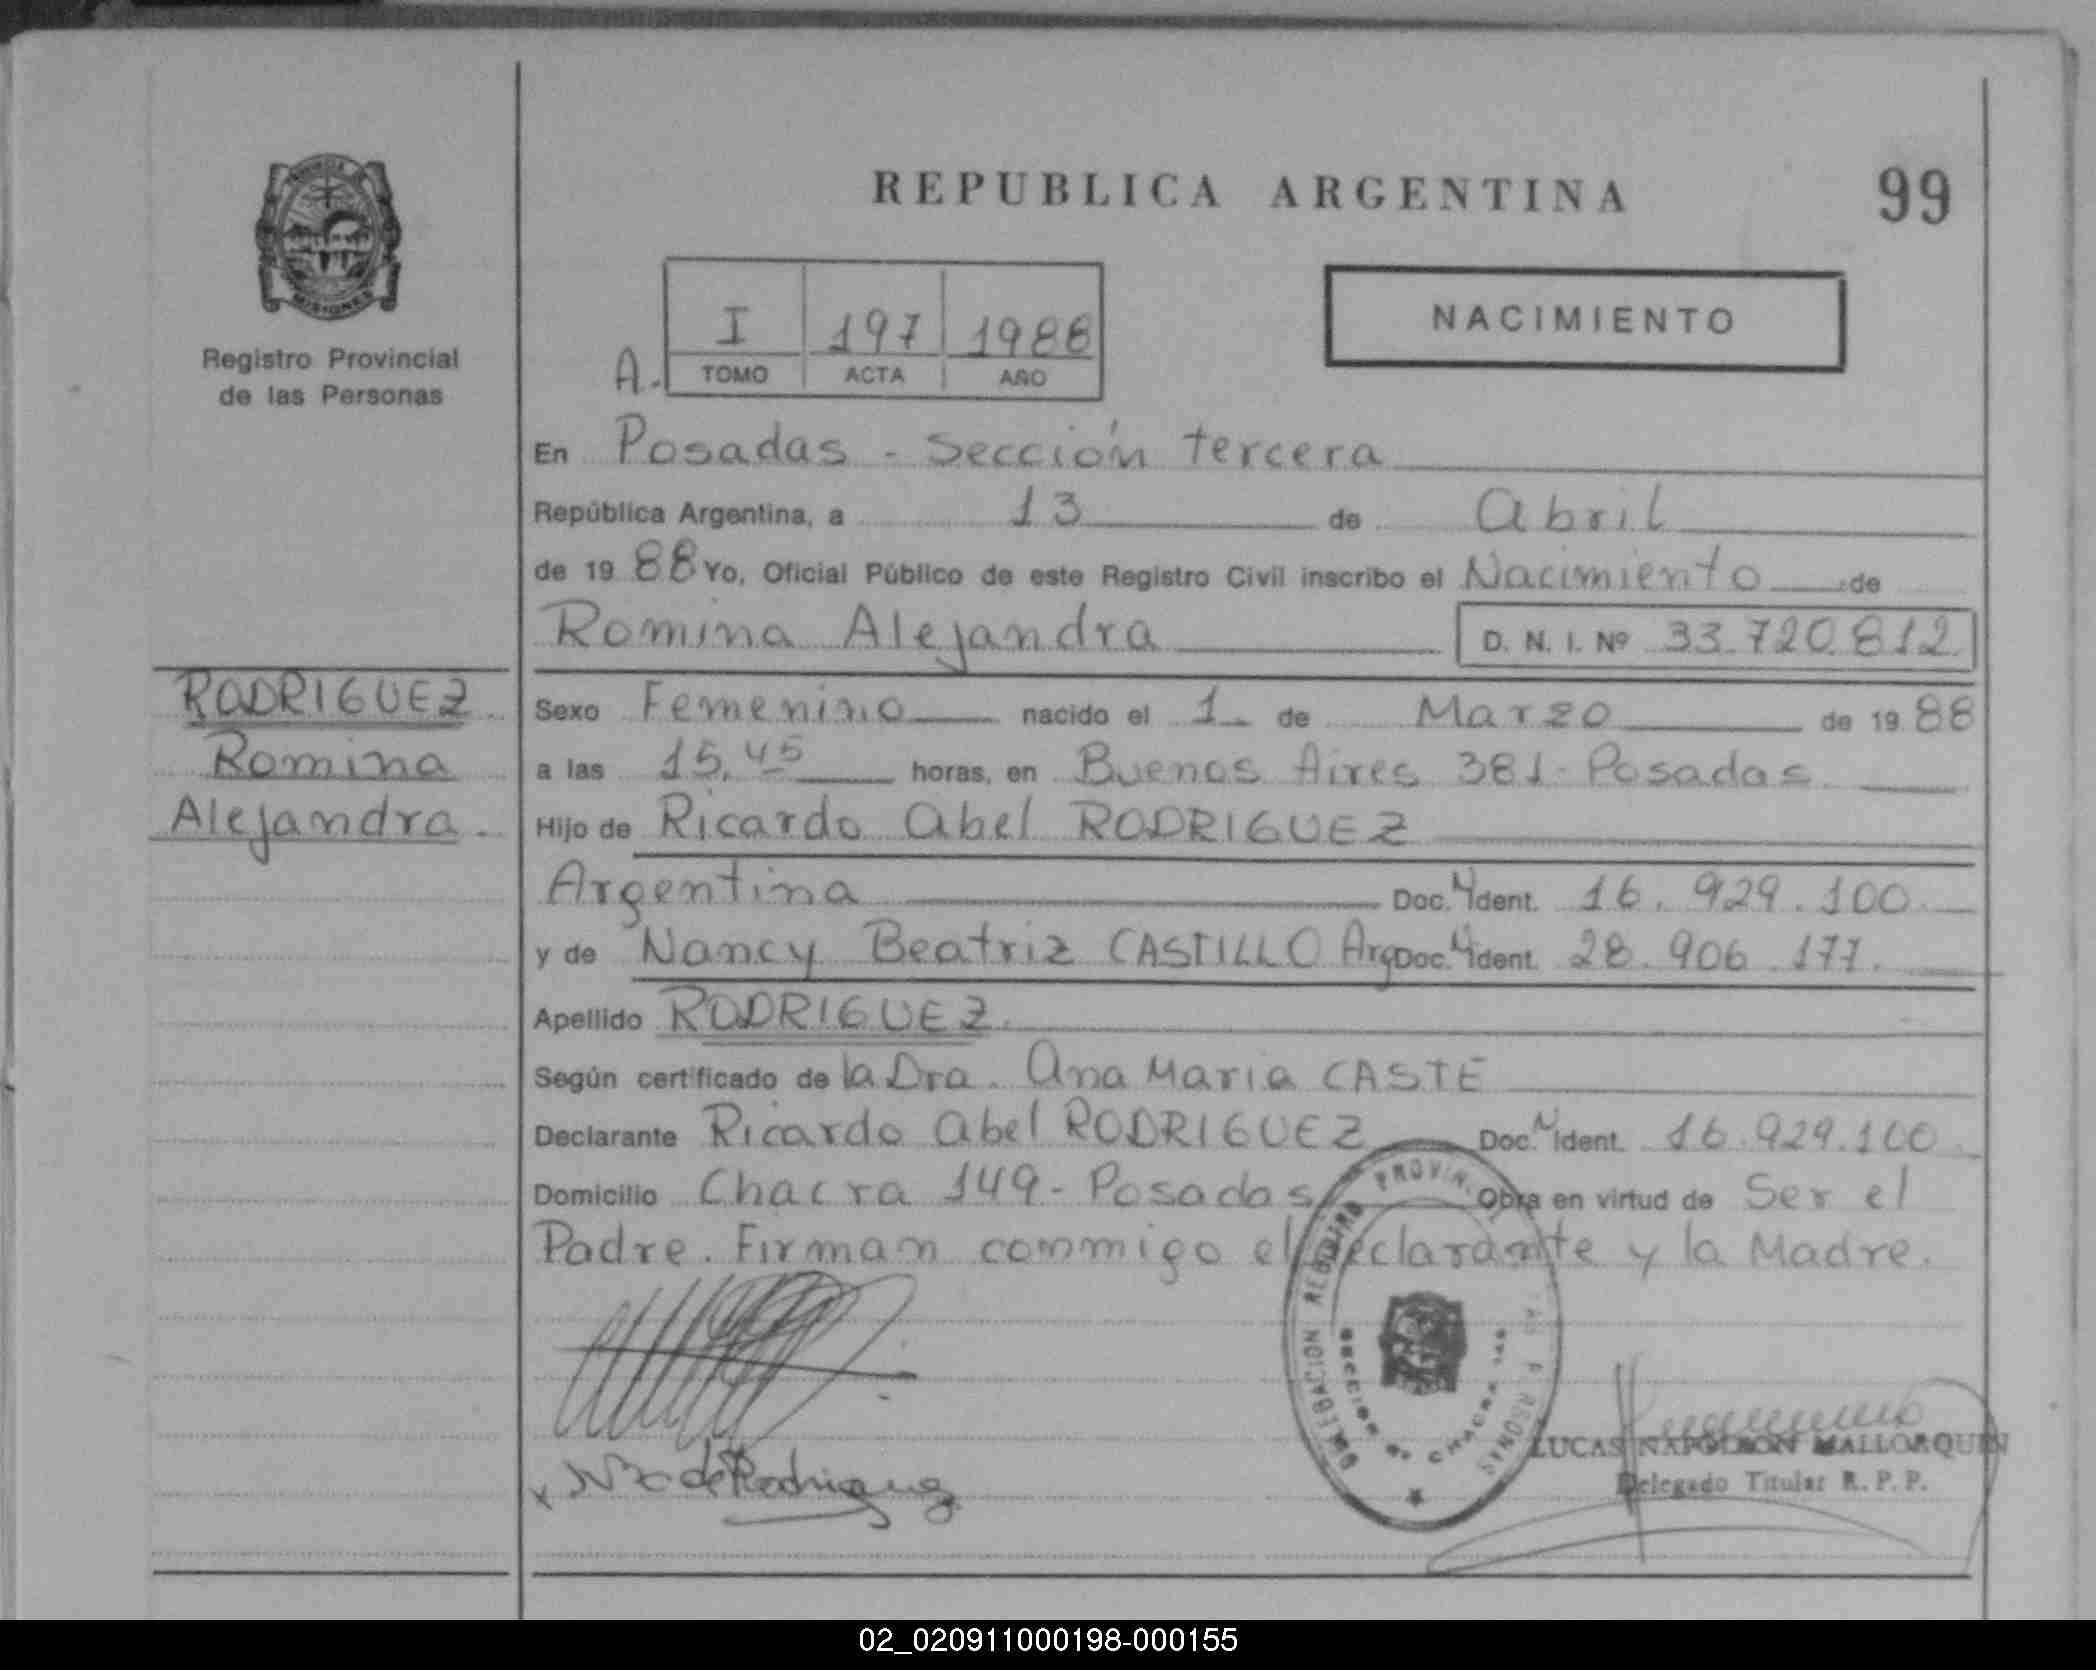 REPUBLICA ARGENTINA
99
Registro Provincial
de las Personas
NACIMIENTO
A.
I 197 1988
TOMO ACTA AÑO
En Posadas - Sección tercera
República Argentina, a 13 de Abril
de 19 88 Yo, Oficial Público de este Registro Civil inscribo el Nacimiento de
Romina Alejandra D. N. I. Nº 33.720.812
RODRIGUEZ
Romina
Alejandra.
Sexo Femenino nacido el 1 de Marzo de 19 88
a las 15,45 horas, en Buenos Aires 381- Posadas
Hijo de Ricardo Abel RODRIGUEZ
Argentina Doc. Ident. 16.929.100
y de Nancy Beatriz CASTILLO Arg Doc. Ident. 28.906.177.
Apellido RODRIGUEZ.
Según certificado de la Dra. Ana Maria CASTE
Declarante Ricardo Abel RODRIGUEZ Doc. Ident. 16.929.100
Domicilio Chacra 149- Posadas Obra en virtud de Ser el
Padre. Firman conmigo el declarante y la Madre.
de Rodriguez
LUCAS NAPOLEON MALLORQUIN
Delegado Titular R. P. P.
02_020911000198-000155